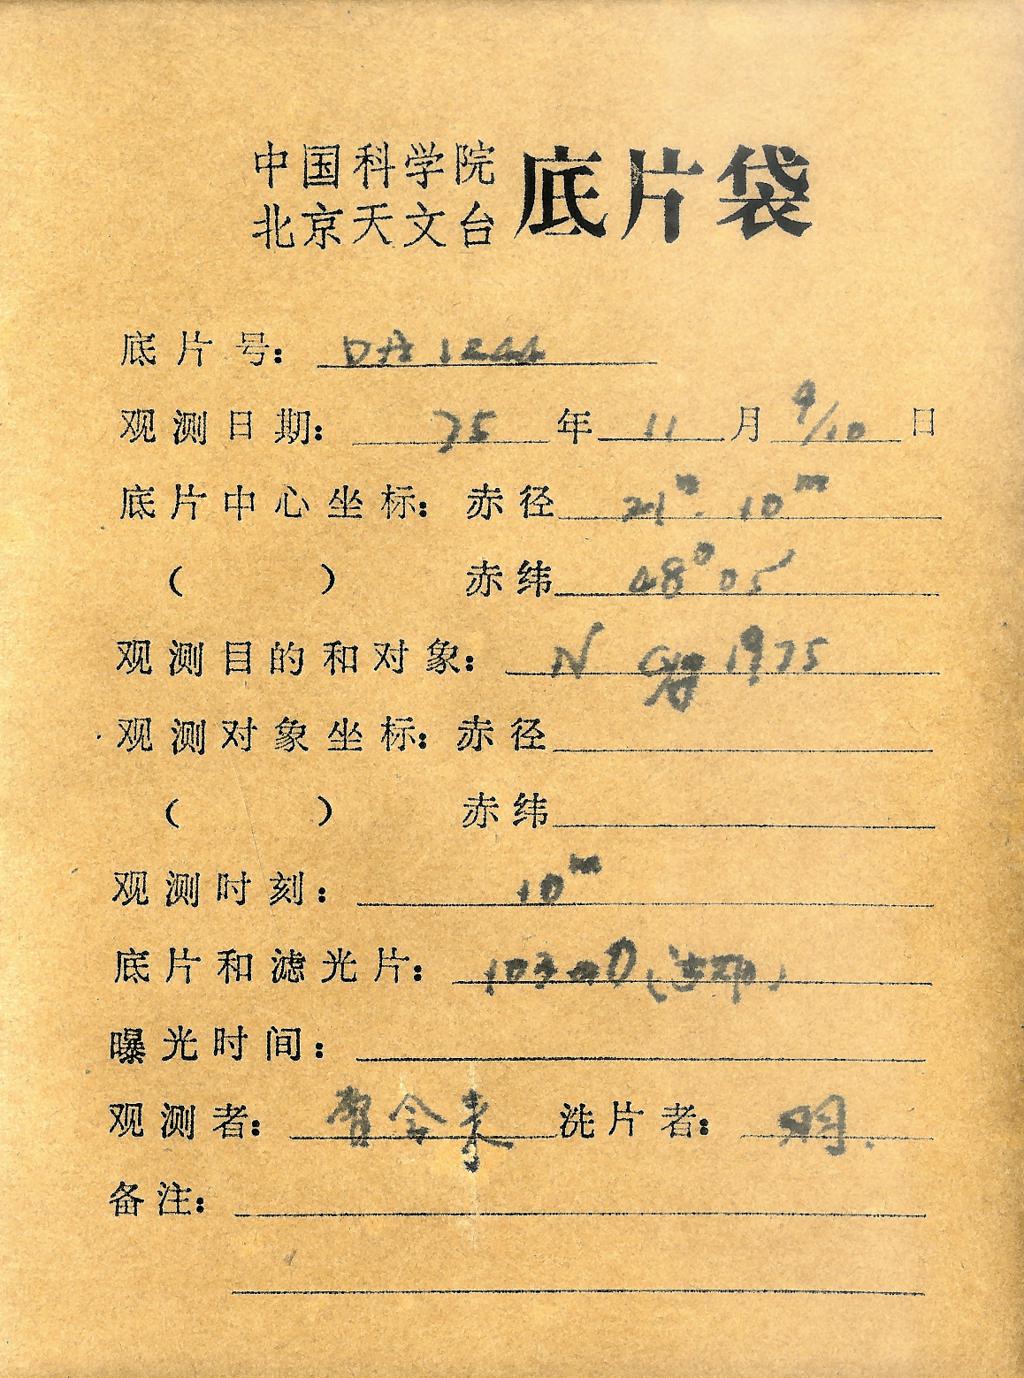 中国科学院
北京天文台 底片袋
底片号: DA 1244
观测日期: 75 年 11 月 9/10 日
底片中心坐标: 赤径 21ʰ 10ᵐ
( ) 赤纬 48°05′
观测目的和对象: N Cyg 1975
观测对象坐标: 赤径
( ) 赤纬
观测时刻: 10ᵐ
底片和滤光片: 103aD
曝光时间:
观测者: 洗片者:
备注: